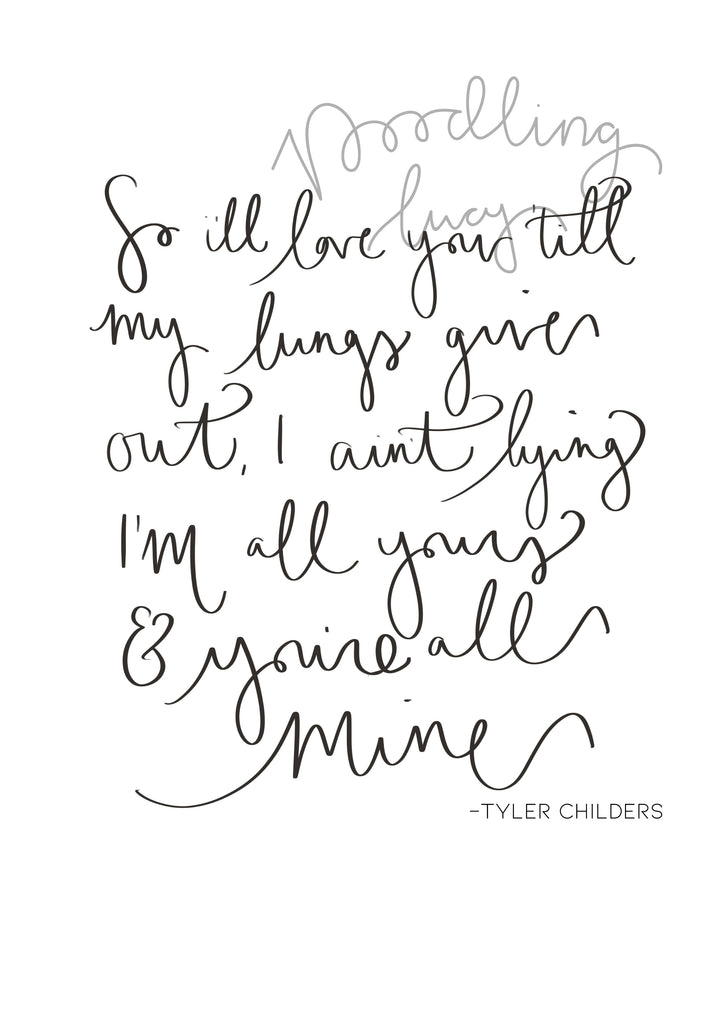 Doodling
lucy
So i'll love you 'till
my lungs give
out, I ain't lying
I'm all yours
& you're all
mine
-TYLER CHILDERS